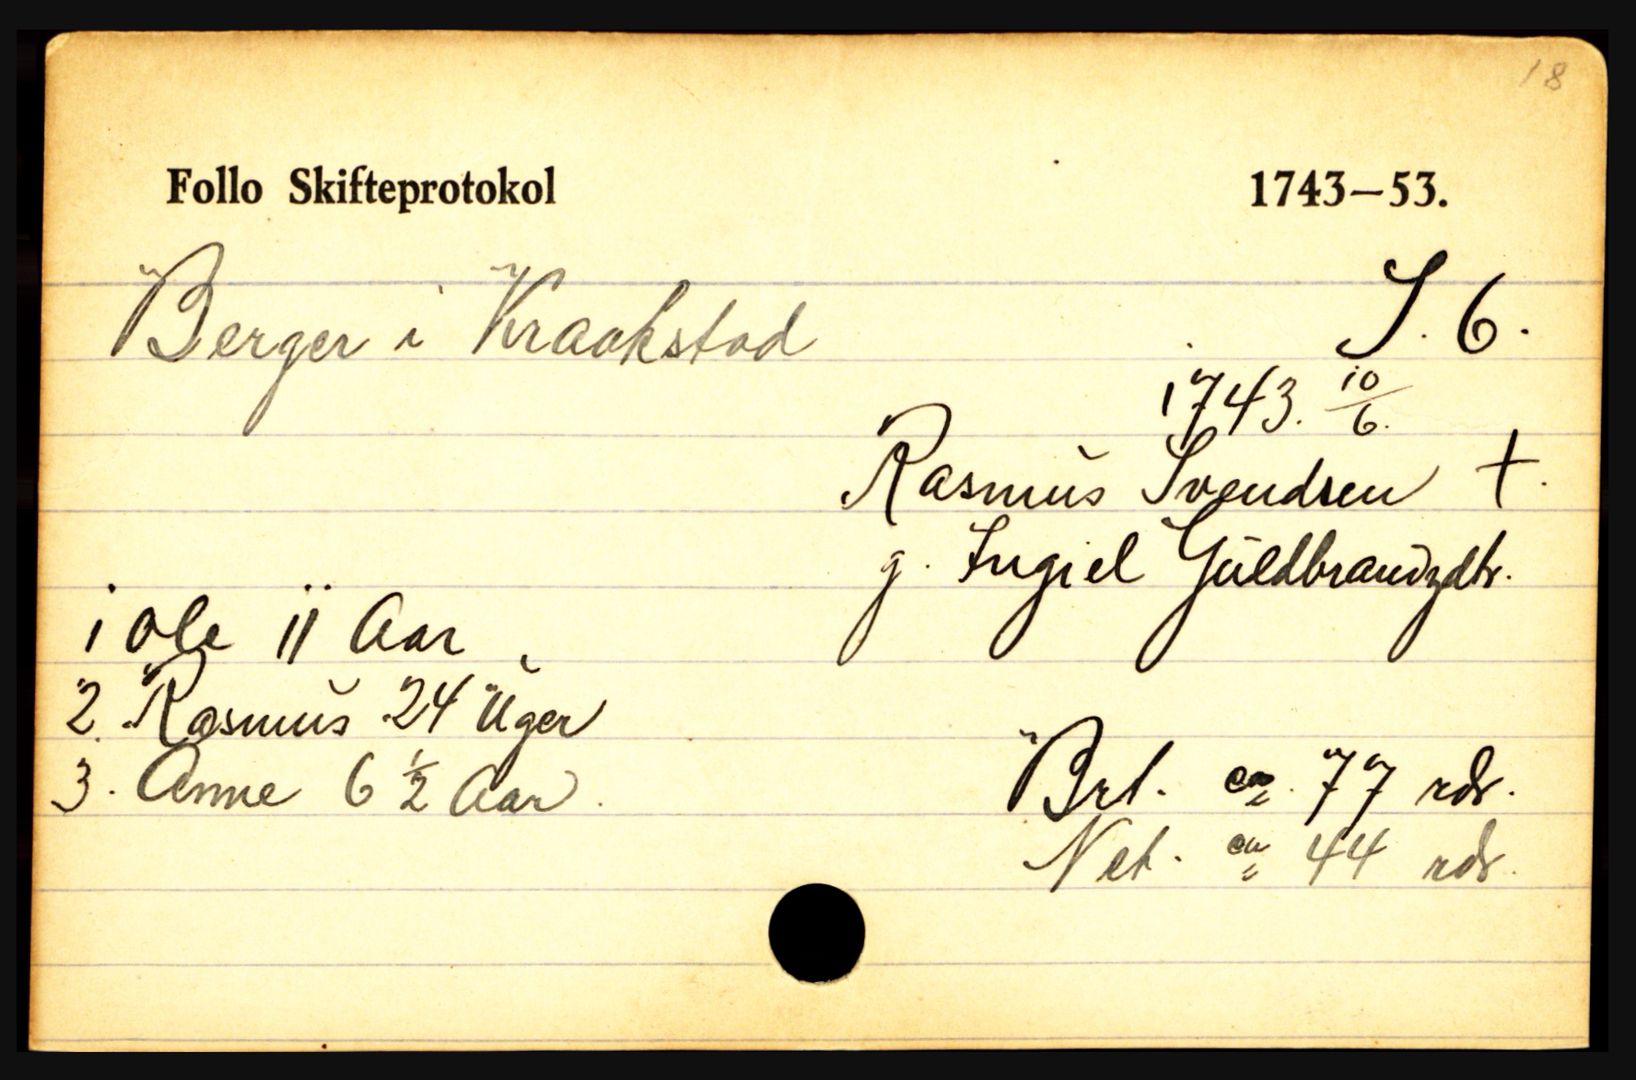 18
Follo Skifteprotokol 1743—53.
Berger i Kraakstad S. 6.
1743. 10/6.
Rasmus Svendsen †.
g. Ingiel Guldbrandzdtr.
1 Ole 11 Aar
2. Rasmus 24 Uger
3. Anne 6 1/2 Aar.
Brt. ca. 77 rdr.
Net. ca 44 rdr.